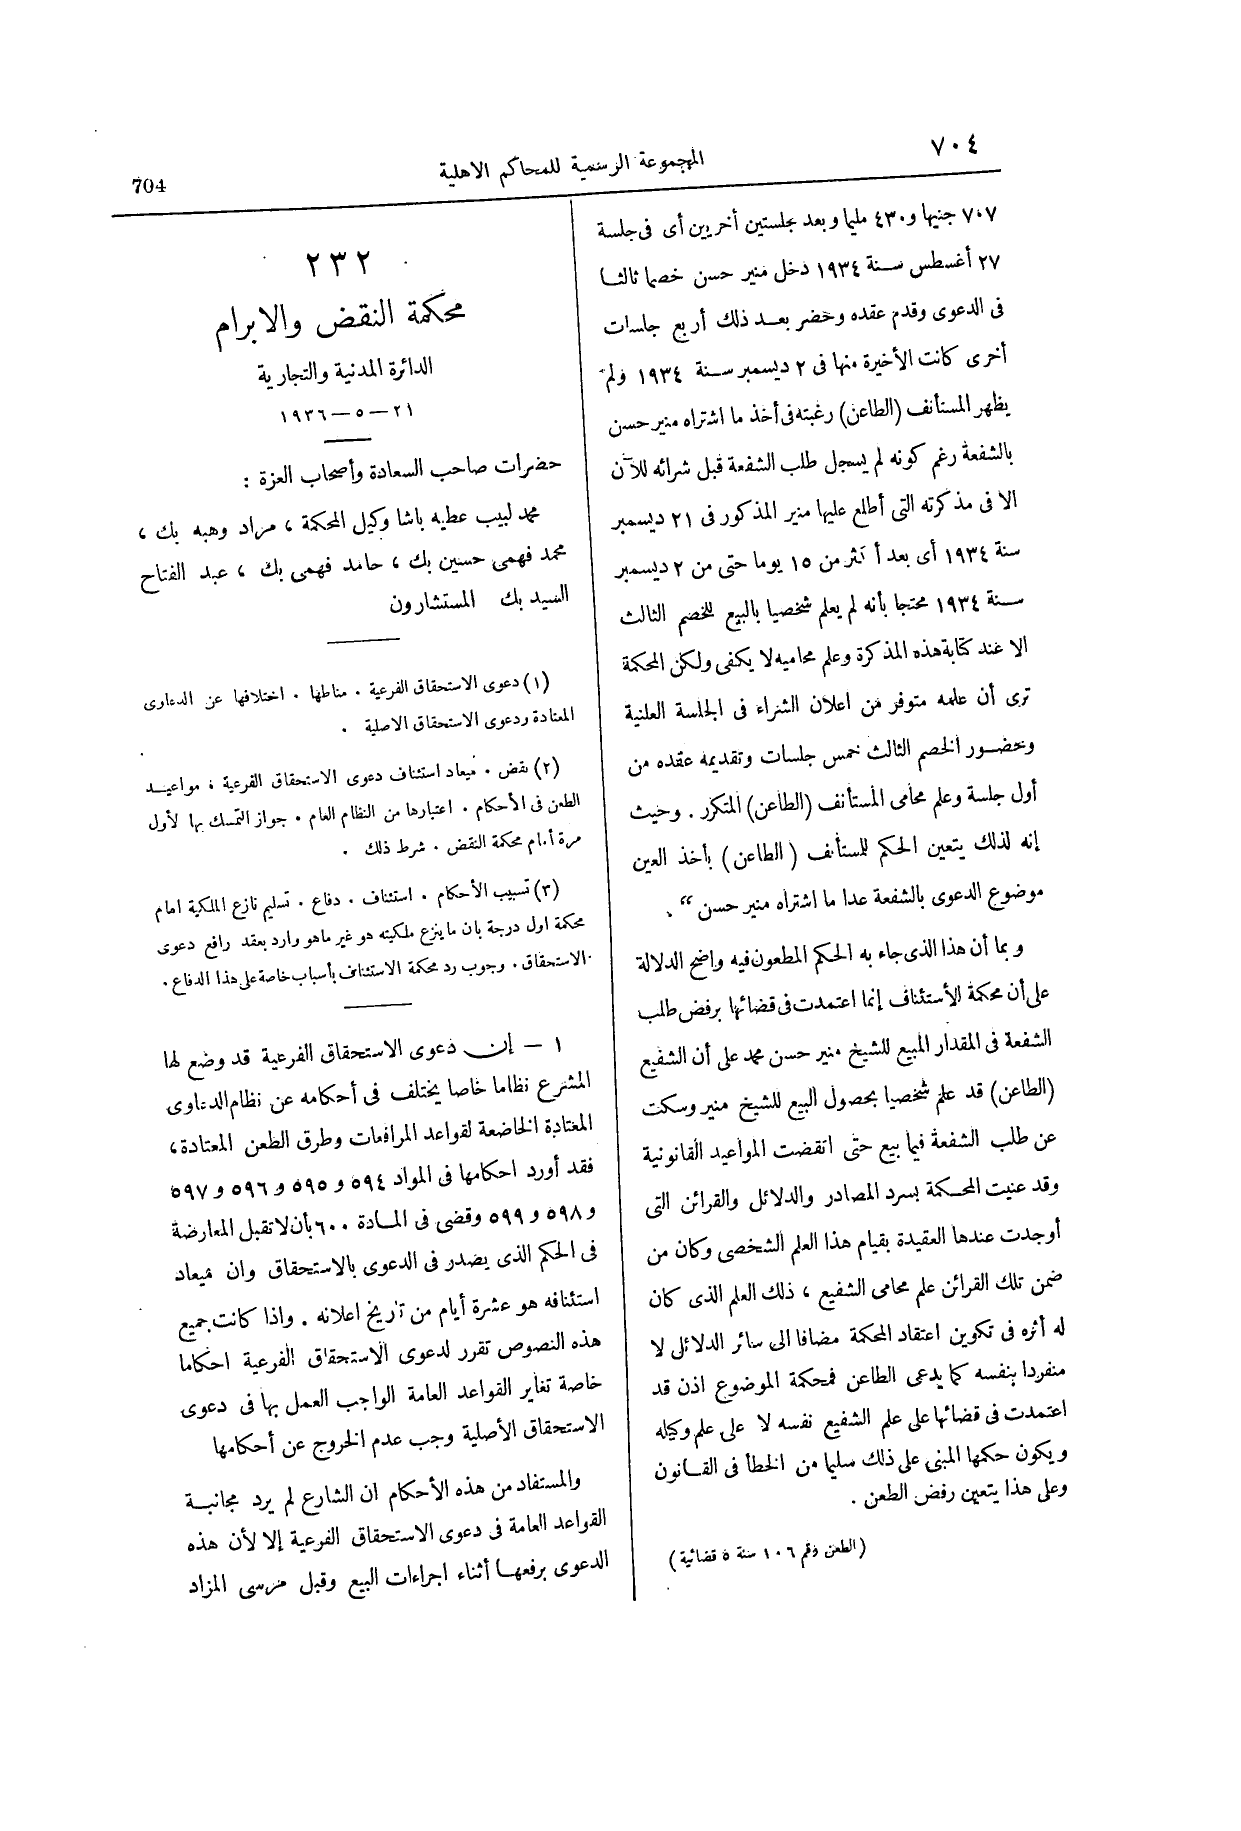 ٧٠٤
المجموعة الرسمية للمحاكم الاهلية
704
٧٠٧ جنيها و٤٣٠ مليما وبعد بجلستين أخريين أى فى جلسة
٢٧ أغسطس سنة ١٩٣٤ دخل منير حسن خصما ثالثا
فى الدعوى وقدم عقده وحضر بعد ذلك أربع جلسات
أخرى كانت الأخيرة منها فى ٢ ديسمبر سنة ١٩٣٤ ولم
يظهر المستأنف (الطاعن) رغبته فى أخذ ما اشتراه منير حسن
بالشفعة رغم كونه لم يسجل طلب الشفعة قبل شرائه للآن
الا فى مذكرته التى أطلع عليها منير المذكور فى ٢١ ديسمبر
سنة ١٩٣٤ أى بعد أكثر من ١٥ يوما حتى من ٢ ديسمبر
سنة ١٩٣٤ محتجا بأنه لم يعلم شخصيا بالبيع للخصم الثالث
الا عند كتابة هذه المذكرة وعلم محاميه لا يكفى ولكن المحكمة
ترى أن علمه متوفر من اعلان الشراء فى الجلسة العلنية
وبحضور الخصم الثالث خمس جلسات وتقديمه عقده من
أول جلسة وعلم محامى المستأنف (الطاعن) المتكرر . وحيث
إنه لذلك يتعين الحكم للمستأنف (الطاعن) بأخذ العين
موضوع الدعوى بالشفعة عدا ما اشتراه منير حسن " .
وبما أن هذا الذى جاء به الحكم المطعون فيه واضح الدلالة
على أن محكمة الأستئناف إنما اعتمدت فى قضائها برفض طلب
الشفعة فى المقدار المبيع للشيخ منير حسن محمد على أن الشفيع
(الطاعن) قد علم شخصيا بحصول البيع للشيخ منير وسكت
عن طلب الشفعة فيما بيع حتى انقضت المواعيد القانونية
وقد عنيت المحكمة بسرد المصادر والدلائل والقرائن التى
أوجدت عندها العقيدة بقيام هذا العلم الشخصى وكان من
ضمن تلك القرائن علم محامى الشفيع ، ذلك العلم الذى كان
له أثره فى تكوين اعتقاد المحكمة مضافا الى سائر الدلائل لا
منفردا بنفسه كما يدعى الطاعن فمحكمة الموضوع اذن قد
اعتمدت فى قضائها على علم الشفيع نفسه لا على علم وكيله
ويكون حكمها المبنى على ذلك سليما من الخطأ فى القانون
وعلى هذا يتعين رفض الطعن .
(الطعن رقم ١٠٦ سنة ٥ قضائية)
٢٣٢
محكمة النقض والابرام
الدائرة المدنية والتجارية
٢١ – ٥ – ١٩٣٦
حضرات صاحب السعادة وأصحاب العزة :
محمد لبيب عطيه باشا وكيل المحكمة ، مراد وهبه بك ،
محمد فهمى حسين بك ، حامد فهمى بك ، عبد الفتاح
السيد بك المستشارون
(١) دعوى الاستحقاق الفرعية . مناطها . اختلافها عن الدعاوى
المعتادة ودعوى الاستحقاق الاصلية .
(٢) نقض . ميعاد استئناف دعوى الاستحقاق الفرعية ، مواعيد
الطعن فى الأحكام . اعتبارها من النظام العام . جواز التمسك بها لأول
مرة أمام محكمة النقض . شرط ذلك .
(٣) تسبيب الأحكام . استئناف . دفاع . تسليم نازع الملكية امام
محكمة اول درجة بان ما ينزع ملكيته هو غير ماهو وارد بعقد رافع دعوى
الاستحقاق . وجوب رد محكمة الاستئناف بأسباب خاصة على هذا الدفاع .
١ – إن دعوى الاستحقاق الفرعية قد وضع لها
المشرع نظاما خاصا يختلف فى أحكامه عن نظام الدعاوى
المعتادة الخاضعة لقواعد المرافعات وطرق الطعن المعتادة ،
فقد أورد احكامها فى المواد ٥٩٤ و ٥٩٥ و ٥٩٦ و ٥٩٧
و ٥٩٨ و ٥٩٩ وقضى فى المادة ٦٠٠ بأن لا تقبل المعارضة
فى الحكم الذى يصدر فى الدعوى بالاستحقاق وان ميعاد
استئنافه هو عشرة أيام من تاريخ اعلانه . واذا كانت جميع
هذه النصوص تقرر لدعوى الاستحقاق الفرعية احكاما
خاصة تغاير القواعد العامة الواجب العمل بها فى دعوى
الاستحقاق الأصلية وجب عدم الخروج عن أحكامها
والمستفاد من هذه الأحكام ان الشارع لم يرد مجانبة
القواعد العامة فى دعوى الاستحقاق الفرعية إلا لأن هذه
الدعوى برفعها أثناء اجراءات البيع وقبل مرسى المزاد